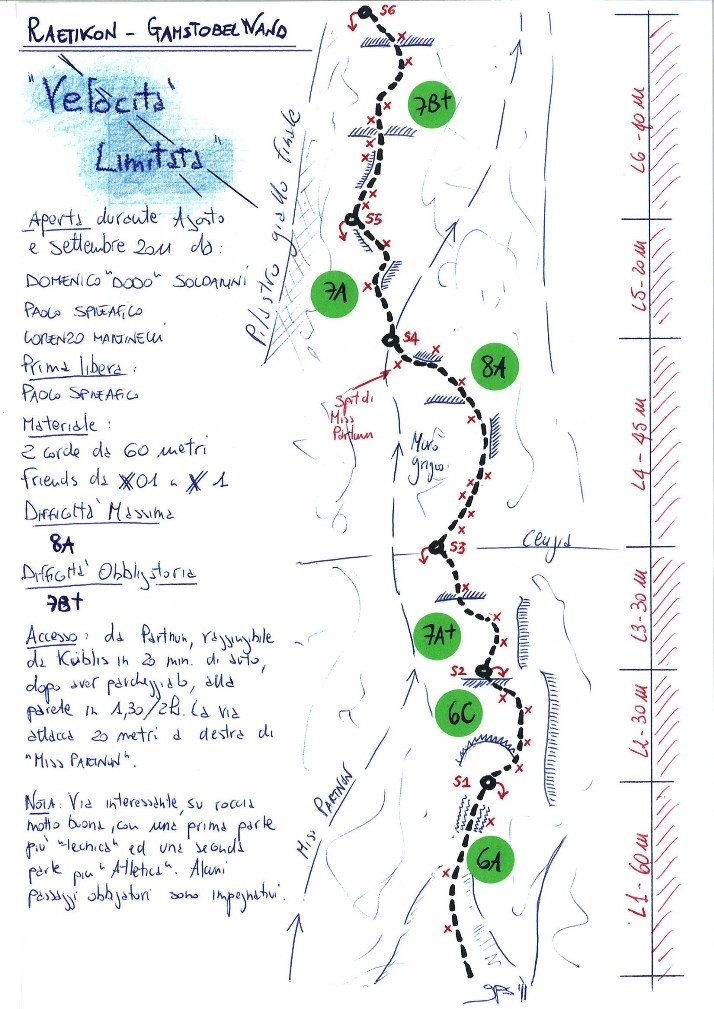 RAETIKON - GAMSTOBELWAND
"Velocità
Limitata"
Aperta durante Agosto
e settembre 2011 da:
DOMENICO "DODO" SOLDARINI
PAOLO SPREAFICO
LORENZO MARTINELLI
Prima libera:
PAOLO SPREAFICO
Materiale:
2 corde da 60 metri
friends da 01 a 1
DIFFICOLTA' MASSIMA
8A
DIFFICOLTA' OBBLIGATORIA
7B+
ACCESSO: da Partnun, raggiungibile
da Küblis in 20 min. di auto,
dopo aver parcheggiato, alla
parete in 1,30/2h. La via
attacca 20 metri a destra di
"MISS PARTNUN".
NOTA: Via interessante, su roccia
molto buona, con una prima parte
più "tecnica" ed una seconda
parte più "Atletica". Alcuni
passaggi obbligatori sono impegnativi.
Pilastro giallo finale
S6
7B+
S5
7A
S4
8A
Spit di
Miss
Partnun
Muro
grigio
S3
Cengia
7A+
S2
6C
S1
6A
MISS PARTNUN
L6 - 40 m
L5 - 20 m
L4 - 45 m
L3 - 30 m
L2 - 30 m
L1 - 60 m